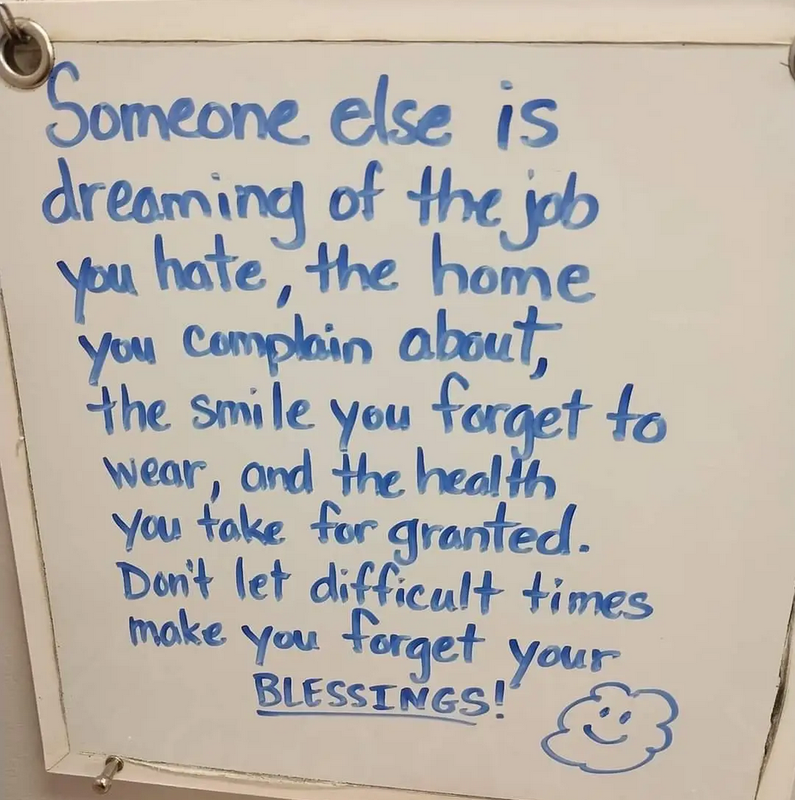 Someone else is
dreaming of the job
you hate, the home
you complain about,
the smile you forget to
wear, and the health
you take for granted.
Don't let difficult times
make you forget your
BLESSINGS!